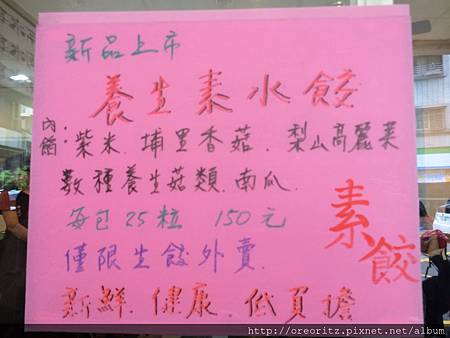 新品上市
養生素水餃
內餡:紫米.埔里香菇.梨山高麗菜
數種養生菇類.南瓜.
每包25粒 150元
僅限生餃外賣.
新鮮.健康.低負擔
素餃
http://oreoritz.pixnet.net/album